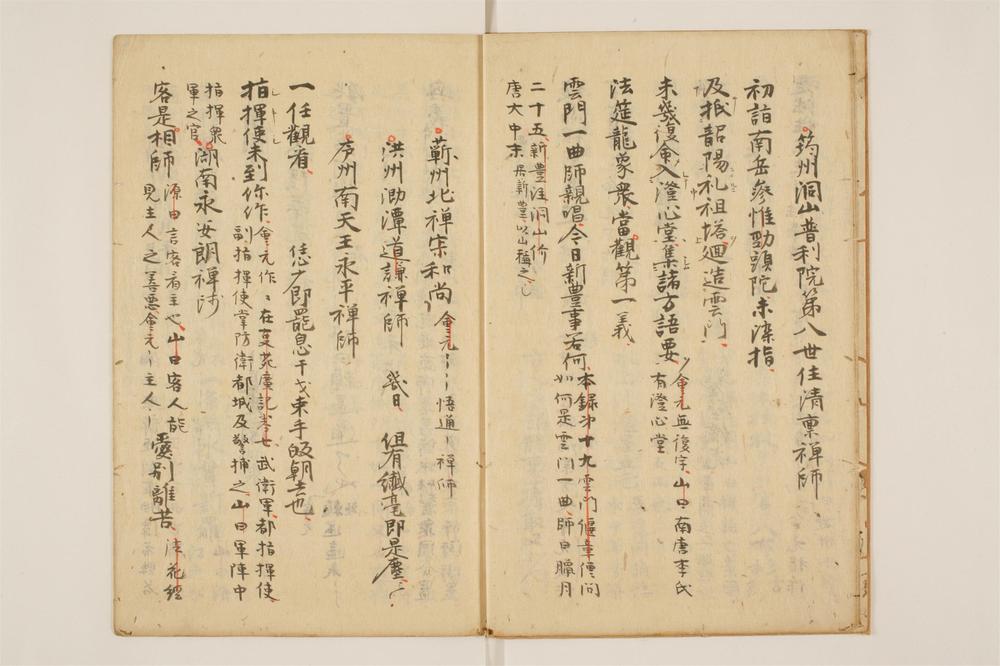 筠州洞山普利院第八世住清稟禅師
初詣南岳參惟勁頭陀未染指
及抵韶陽礼祖塔廻造雲門
未幾復令入澄心堂集諸方語要 會元無復字山曰南唐李氏
有澄心堂
法筵龍象衆當觀第一義
雲門一曲師親唱今日新豊事若何 本録第十九雲門偃章僧問
如何是雲門一曲師曰臘月
二十五新豊洞山价
唐大中末居新豊以山稱之
蘄州北禅宗和尚 會元悟通禅師
洪州泐潭道謙禅師 但有纖毫即是塵
庐州南天王永平禅師
一任觀看 恁麼即罷息干戈束手皈朝去也
指揮使未到你作 會元作在夏苑廣記卷七武衛軍都指揮使
副指揮使掌防衛都城及警捕之山曰軍陣中
指揮衆
軍之官 湖南永安朗禅師
客是相師 源由言客看主也山曰客人能
見主人之善悪會元主人 愛別離苦法花經